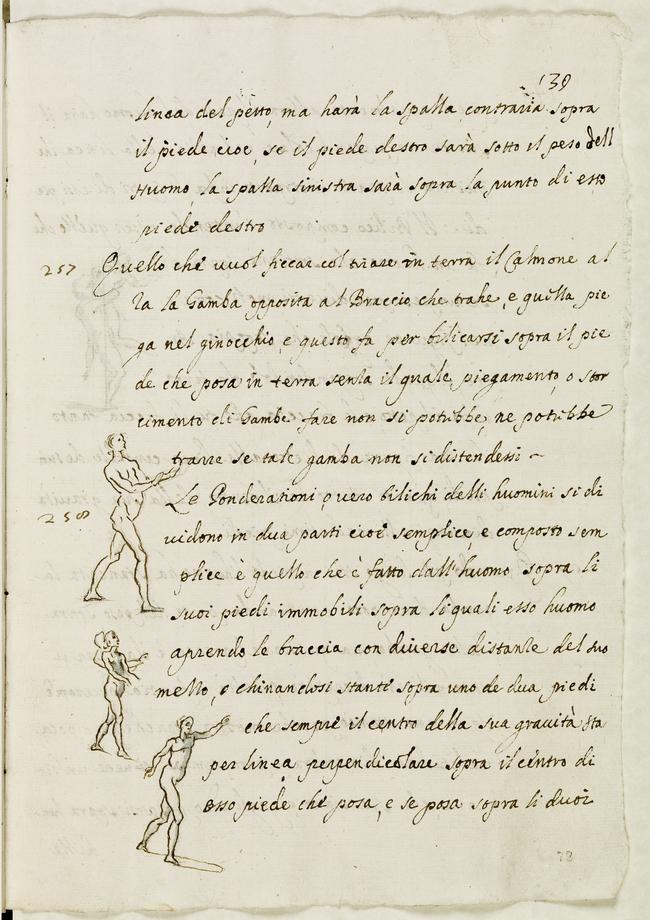 139
linea del petto, ma harà la spalla contraria sopra
il piede cioe, se il piede destro sarà sotto il peso dell
Huomo, la spalla sinistra sarà sopra la punto di esto
piede destro
257 Quello che vuol ficcar col trare in terra il Calmone al
la la Gamba opposita al Braccio che trahe, e quilla pie
ga nel ginocchio e questo fa per bilicarsi sopra il pie
de che posa in terra senza il quale, piegamento, o stor
cimento di Gambe fare non si potrebbe, ne potrebbe
trarre se tale gamba non si distendessi ~
258 Le Ponderationi, overo bilichi delli huomini si di
vidono in dua parti cioe semplice, e composto sem
plice è quello che è fatto dall'huomo sopra li
suoi piedi immobili sopra li quali esso huomo
aprendo le braccia con diverse distanze del suo
mezzo, o chinandosi stante sopra uno de dua piedi
che sempre il centro della sua gravità sta
per linea perpendicolare sopra il centro di
esso piede che posa, e se posa sopra li duoi
78